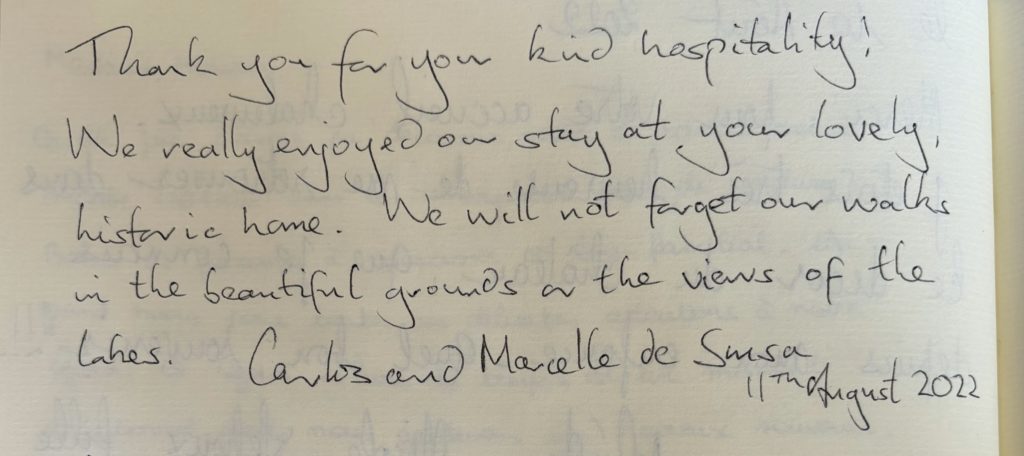 Thank you for your kind hospitality!
We really enjoyed our stay at your lovely,
historic home. We will not forget our walks
in the beautiful grounds or the views of the
lakes. Carlos and Marcelle de Sousa
11TH August 2022